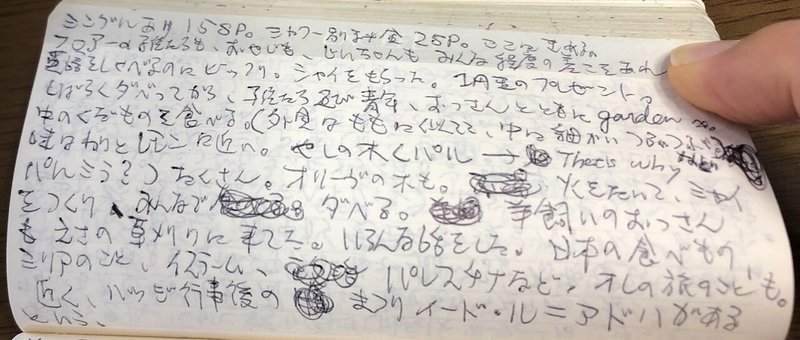 シングル3# 158P。シャワー別料金 25P。ここにきめる。
フロアーの子供たちも、おやじも、じいちゃんもみんな程度の差こそあれ
英語をしゃべるのにビックリ。シャイをもらった。1円玉のプレゼント。
しばらくダベってから、子供たち及び青年、おっさんとともに garden へ。
中のくだものを食べる。(外見はももに似てて、中は細かいつぶつぶ。
味はわりとレモンに近い。やしの木くパル → That's why
パルミラ?) たくさん。オリーヴの木も。火をたいて、シャイ
をつくり、みんなでダベる。羊飼いのおっさん
もえさの草刈りに来てた。いろんな話をした。日本の食べもの
シリアのこと、イスラーム、パレスチナなど。オレの旅のことも。
近く、ハッジ行事後のまつりイード・ル=アドハがある
という。